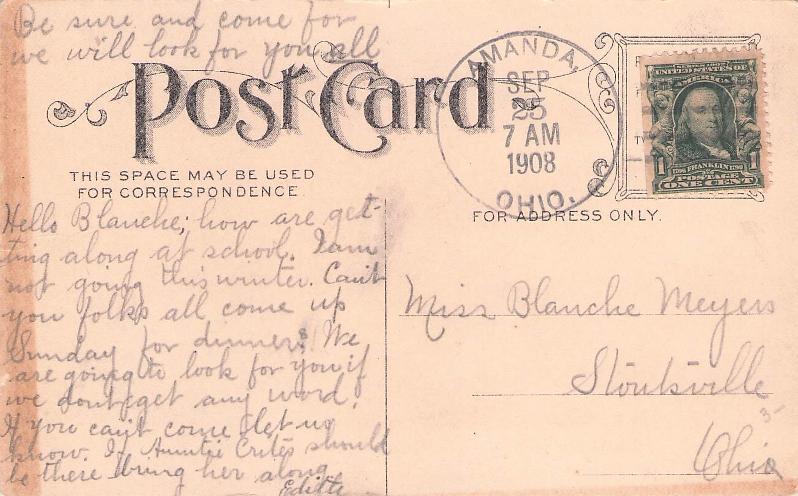 Be sure and come for
we will look for you all
Post Card
THIS SPACE MAY BE USED
FOR CORRESPONDENCE
Hello Blanche; how are get-
ting along at school. I am
not going this winter. Can't
you folks all come up
Sunday for dinner? We
are going to look for you if
we dont get any word.
If you can't come let us
know. If Auntie Crites should
be there bring her along
Edith
AMANDA,
SEP
25
7 AM
1908
OHIO.
UNITED STATES OF
AMERICA
1
1
FRANKLIN
POSTAGE
ONE CENT
FOR ADDRESS ONLY.
Miss Blanche Meyers
Stoutsville
3-
Ohio